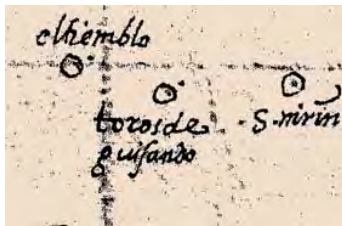 eltiemblo
toros de
guisando
S. mĩn